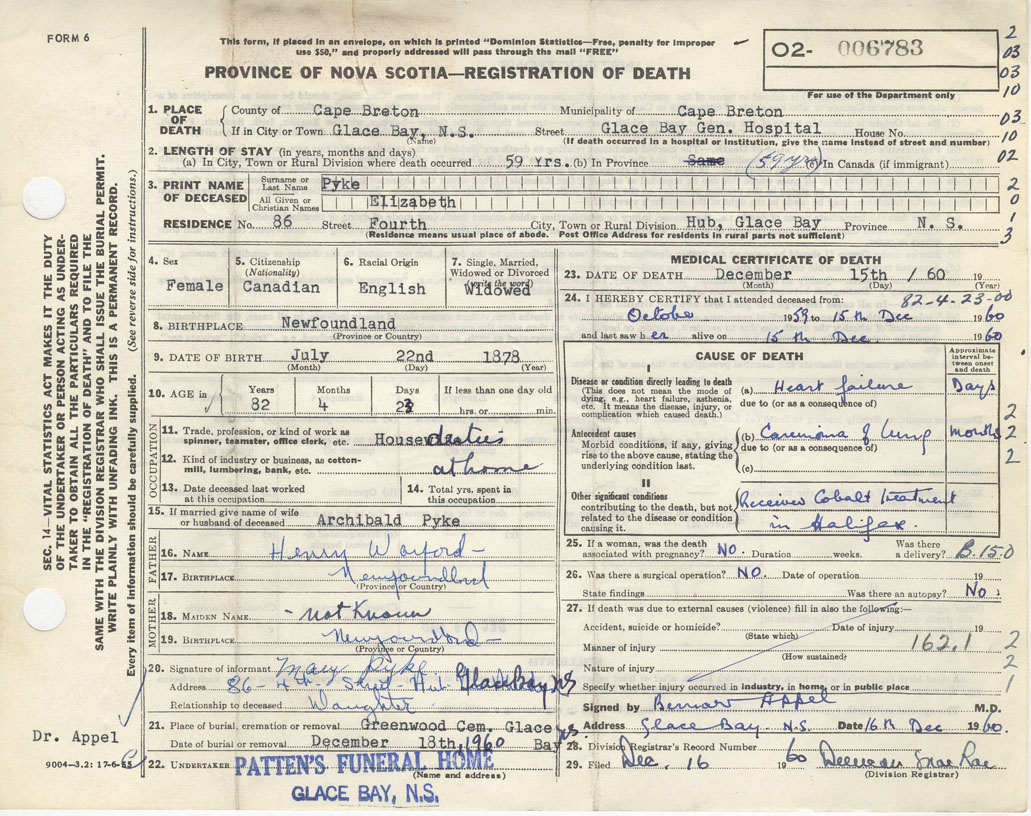 FORM 6
This form, if placed in an envelope, on which is printed "Dominion Statistics—Free, penalty for improper
use $50," and properly addressed will pass through the mail "FREE"
PROVINCE OF NOVA SCOTIA—REGISTRATION OF DEATH
O2- 006783
For use of the Department only
2
03
03
10
03
10
02
2
0
1
3
1. PLACE OF DEATH
County of Cape Breton Municipality of Cape Breton
If in City or Town Glace Bay, N.S. Street Glace Bay Gen. Hospital House No.
(Name) (If death occurred in a hospital or institution, give the name instead of street and number)
2. LENGTH OF STAY (in years, months and days)
(a) In City, Town or Rural Division where death occurred 59 Yrs. (b) In Province Same (59 yrs) (c) In Canada (if immigrant)
3. PRINT NAME OF DECEASED
Surname or Last Name Pyke
All Given or Christian Names Elizabeth
RESIDENCE No. 86 Street Fourth City, Town or Rural Division Hub, Glace Bay Province N. S.
(Residence means usual place of abode. Post Office Address for residents in rural parts not sufficient)
4. Sex
Female
5. Citizenship
(Nationality)
Canadian
6. Racial Origin
English
7. Single, Married,
Widowed or Divorced
(write the word)
Widowed
8. BIRTHPLACE Newfoundland
(Province or Country)
9. DATE OF BIRTH July 22nd 1878
(Month) (Day) (Year)
10. AGE in
Years Months Days If less than one day old
82 4 23 hrs. or min.
OCCUPATION
11. Trade, profession, or kind of work as
spinner, teamster, office clerk, etc. House duties
12. Kind of industry or business, as cotton-
mill, lumbering, bank, etc. at home
13. Date deceased last worked
at this occupation
14. Total yrs. spent in
this occupation
15. If married give name of wife
or husband of deceased Archibald Pyke
FATHER
16. NAME Henry
17. BIRTHPLACE Newfoundland
(Province or Country)
MOTHER
18. MAIDEN NAME - not Known
19. BIRTHPLACE Newfoundland
(Province or Country)
20. Signature of informant Mary Pyke
Address 86 - 4th Street - Hub Glace Bay NS
Relationship to deceased Daughter
21. Place of burial, cremation or removal Greenwood Cem. Glace
Date of burial or removal December 18th, 1960 Bay NS.
22. UNDERTAKER PATTEN'S FUNERAL HOME
(Name and address)
GLACE BAY, N.S.
MEDICAL CERTIFICATE OF DEATH
23. DATE OF DEATH December 15th / 60 19
(Month) (Day) (Year)
24. I HEREBY CERTIFY that I attended deceased from: 82-4-23-00
October 1959 to 15th Dec 1960
and last saw her alive on 15th Dec 1960
CAUSE OF DEATH
Approximate
interval be-
tween onset
and death
I
Disease or condition directly leading to death
(This does not mean the mode of
dying, e.g., heart failure, asthenia,
etc. It means the disease, injury, or
complication which caused death.)
(a) Heart failure Days
due to (or as a consequence of)
Antecedent causes
Morbid conditions, if any, giving
rise to the above cause, stating the
underlying condition last.
(b) Carcinoma of Lung months
due to (or as a consequence of)
(c)
2
2
2
II
Other significant conditions
contributing to the death, but not
related to the disease or condition
causing it.
Received Cobalt treatment
in Halifax.
25. If a woman, was the death
associated with pregnancy? NO. Duration weeks. Was there
a delivery? B.150
26. Was there a surgical operation? NO. Date of operation 19
State findings Was there an autopsy? No
27. If death was due to external causes (violence) fill in also the following:—
Accident, suicide or homicide? Date of injury 19
(State which)
Manner of injury 162.1 2
(How sustained)
Nature of injury 2
Specify whether injury occurred in industry, in home, or in public place 1
Signed by Bernard Appel M.D.
Address Glace Bay N.S. Date 16th Dec 1960.
28. Division Registrar's Record Number
29. Filed Dec. 16 1960
(Division Registrar)
SEC. 14—VITAL STATISTICS ACT MAKES IT THE DUTY
OF THE UNDERTAKER OR PERSON ACTING AS UNDER-
TAKER TO OBTAIN ALL THE PARTICULARS REQUIRED
IN THE "REGISTRATION OF DEATH" AND TO FILE THE
SAME WITH THE DIVISION REGISTRAR WHO SHALL ISSUE THE BURIAL PERMIT.
WRITE PLAINLY WITH UNFADING INK. THIS IS A PERMANENT RECORD.
Every item of information should be carefully supplied. (See reverse side for instructions.)
Dr. Appel
9004—3.2: 17-6-55